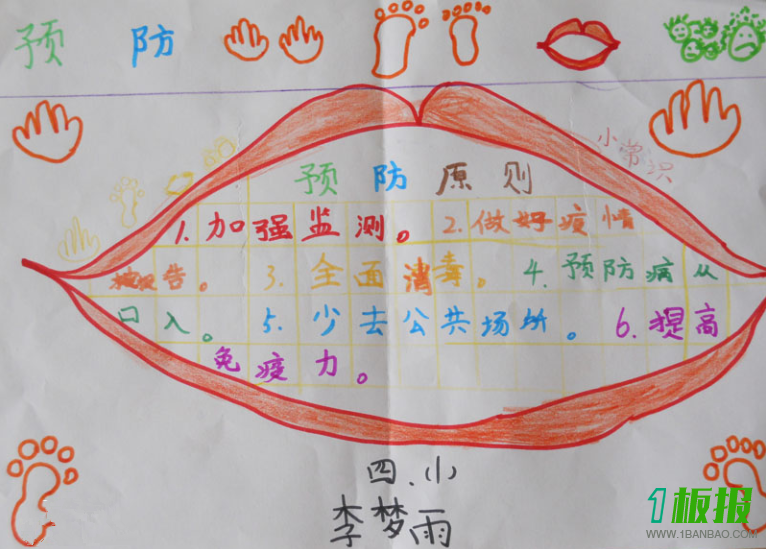 预 防
小常识
预防原则
1.加强监测。2.做好疫情
报告。3.全面消毒。4.预防病从
口入。5.少去公共场所。6.提高
免疫力。
四.小
李梦雨
1板报
WWW.1BANBAO.COM